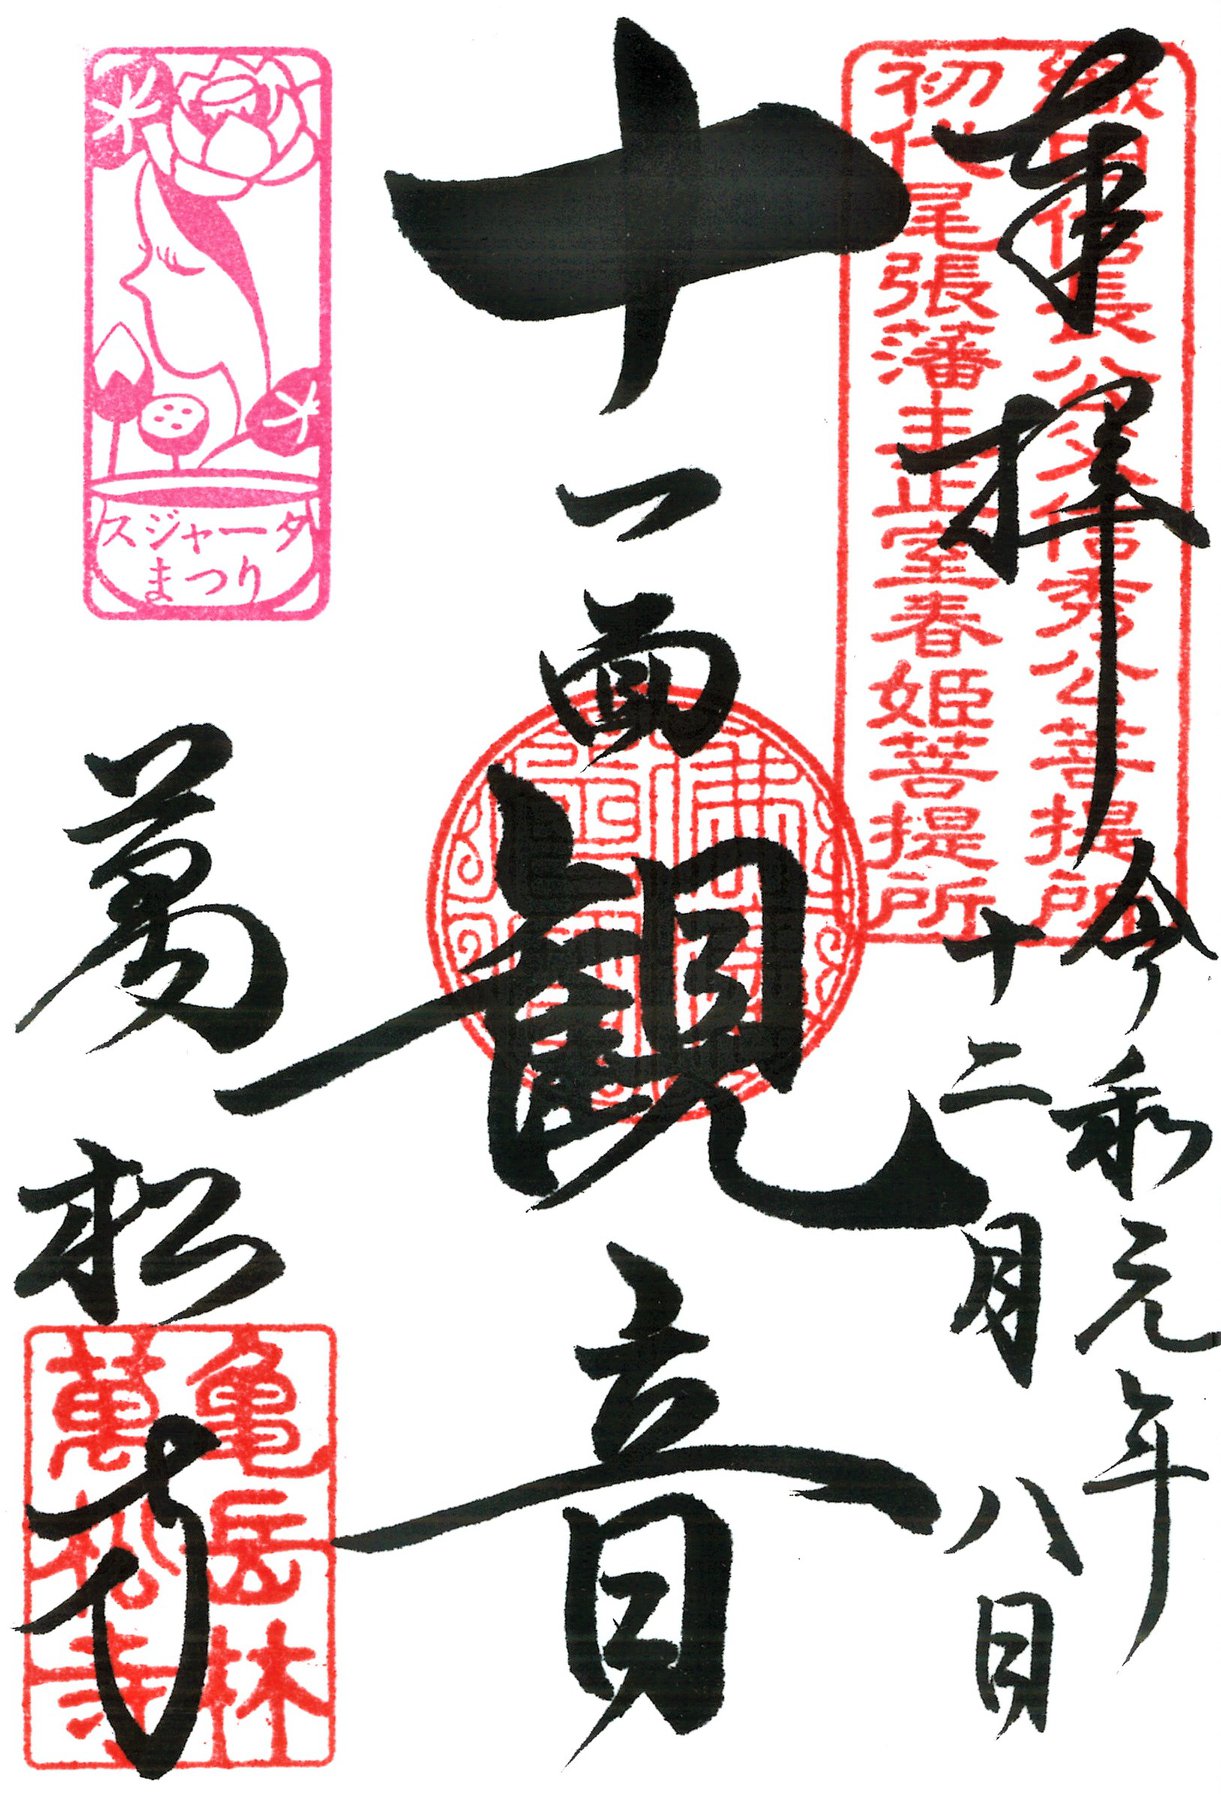 奉拝
令和元年
十二月八日
織田信長公父信秀公菩提所
初代尾張藩主正室春姫菩提所
十一面観音
萬松寺
亀岳林
萬松寺
スジャータ
まつり